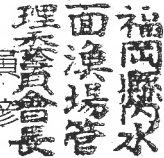 福岡縣内水
面漁場管
理委員會長